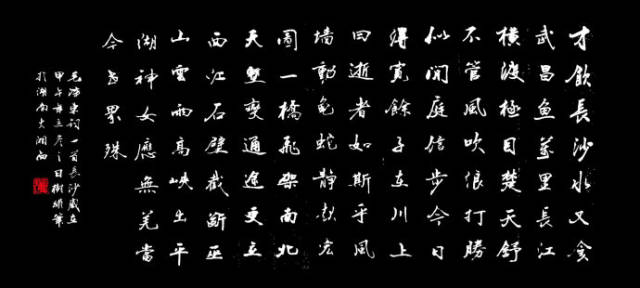 才飲長沙水又食
武昌魚萬里長江
橫渡極目楚天舒
不管風吹浪打勝
似閒庭信步今日
得寬餘子在川上
曰逝者如斯乎風
墻動龜蛇靜起宏
圖一橋飛架南北
天塹變通途更立
西江石壁截斷巫
山雲雨高峽出平
湖神女應無恙當
今世界殊
毛澤東詞一首長沙歲在
甲午年五月之日樹雄筆
於湖南大湘西